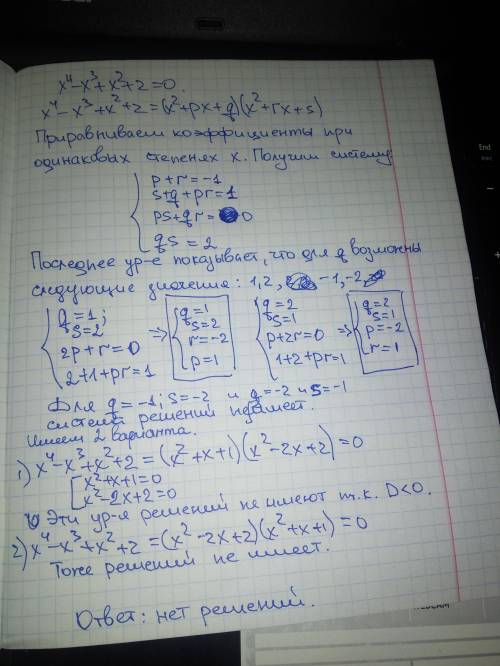 x⁴-x³+x²+2=0.
x⁴-x³+x²+2=(x²+px+q)(x²+rx+s)
Приравниваем коэффициенты при
одинаковых степенях x. Получим систему:
p+r=-1
s+q+pr=1
ps+qr=0
qs=2
Последнее ур-е показывает, что для q возможны
следующие значения: 1,2, -1,-2,
{q=1; s=2 2p+r=0 2+1+pr=1 => {q=1 s=2 r=-2 p=1
{q=2 s=1 p+2r=0 1+2+pr=1 => {q=2 s=1 p=-2 r=1
Для q=-1; s=-2 и q=-2 и s=-1
система решений не имеет.
Имеем 2 варианта.
1) x⁴-x³+x²+2=(x²+x+1)(x²-2x+2)=0
[x²+x+1=0
x²-2x+2=0
Эти ур-я решений не имеют т.к. D<0.
2) x⁴-x³+x²+2=(x²-2x+2)(x²+x+1)=0
Тоже решений не имеет.
Ответ: нет решений.
End
WEBCAM